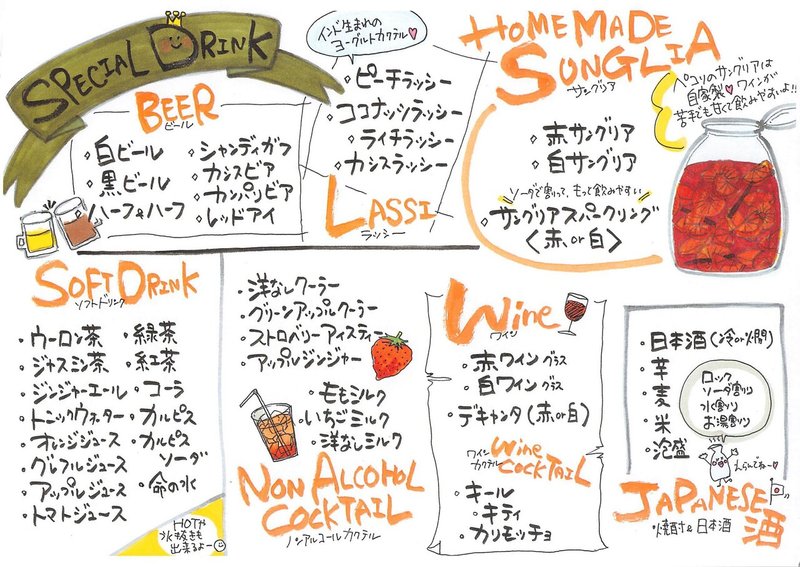 SPECIAL DRINK
BEER
ビール
・白ビール
・黒ビール
ハーフ&ハーフ
・シャンディガフ
・カシスビア
・カンパリビア
・レッドアイ
インド生まれの
ヨーグルトカクテル♡
・ピーチラッシー
・ココナッツラッシー
・ライチラッシー
・カシスラッシー
LASSI
ラッシー
HOMEMADE
SUNGLIA
サングリア
ペコリのサングリアは
自家製♡ワインが
苦手でも甘くて飲みやすいよ!!
・赤サングリア
・白サングリア
ソーダで割って、もっと飲みやすい
・サングリアスパークリング
〈赤or白〉
SOFT DRINK
ソフトドリンク
・ウーロン茶
・ジャスミン茶
・ジンジャーエール
・トニックウォーター
・オレンジジュース
・グレフルジュース
・アップルジュース
・トマトジュース
・緑茶
・紅茶
・コーラ
・カルピス
・カルピス
ソーダ
・命の水
HOTや
氷抜きも
出来るよー
・洋なしクーラー
・グリーンアップルクーラー
・ストロベリーアイスティ
・アップルジンジャー
・ももミルク
・いちごミルク
・洋なしミルク
NON ALCOHOL
COCKTAIL
ノンアルコールカクテル
Wine
ワイン
・赤ワイン グラス
・白ワイン グラス
・デキャンタ(赤or白)
ワイン
カクテル
Wine
COCKTAIL
・キール
・キティ
・カリモッチョ
・日本酒(冷or燗)
・芋
・麦
・米
・泡盛
ロック
ソーダ割り
水割り
お湯割り
えらんでねー♡
JAPANESE
酒
焼酎&日本酒